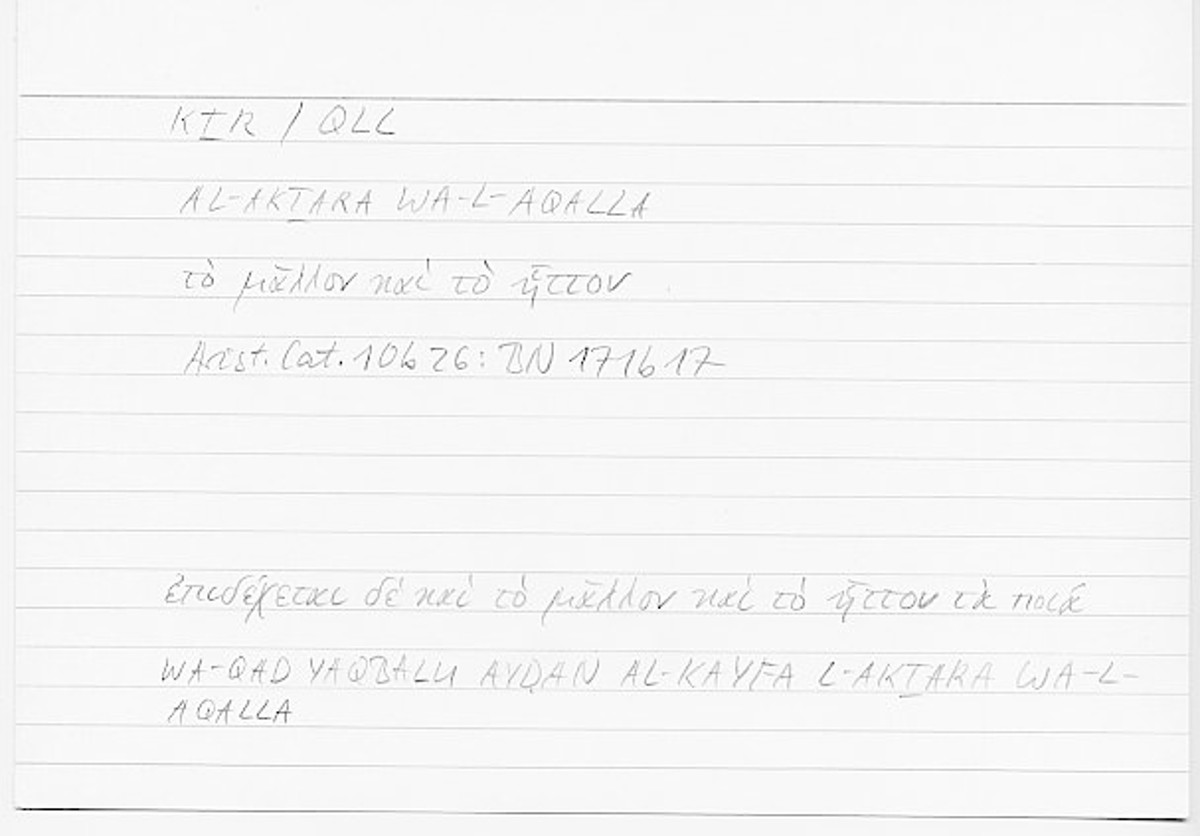 KṮR / QLL
AL-AKṮARA WA-L-AQALLA
τὸ μᾶλλον καὶ τὸ ἧττον
Arist. Cat. 10b26: BN 171b17
ἐπιδέχεται δὲ καὶ τὸ μᾶλλον καὶ τὸ ἧττον τὰ ποιά
WA-QAD YAQBALU AYḌAN AL-KAYFA L-AKṮARA WA-L-
AQALLA